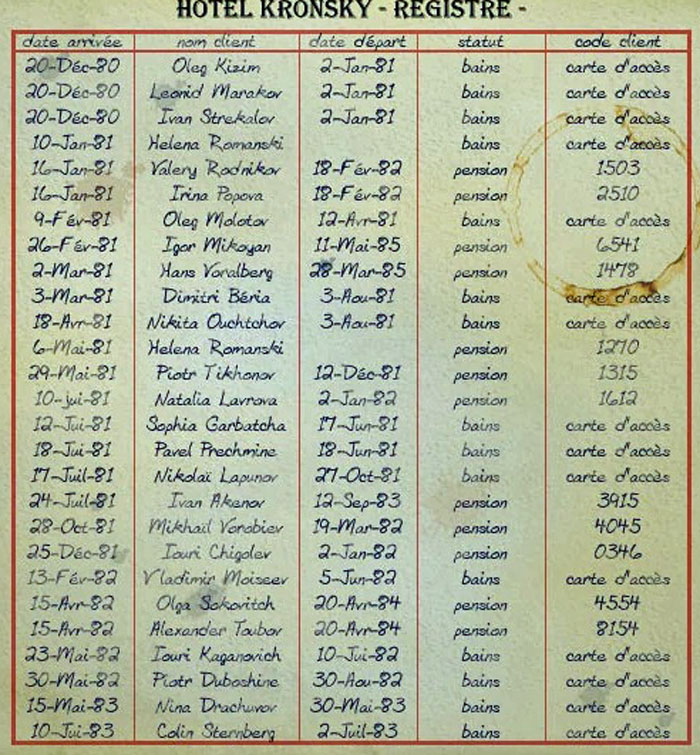 HOTEL KRONSKY - REGISTRE -
date arrivée nom client date départ statut code client
20-Déc-80 Oleg Kizim 2-Jan-81 bains carte d'accès
20-Déc-80 Leonid Marakov 2-Jan-81 bains carte d'accès
20-Déc-80 Ivan Strekalov 2-Jan-81 bains carte d'accès
10-Jan-81 Helena Romanski bains carte d'accès
16-Jan-81 Valery Rodnikov 18-Fév-82 pension 1503
16-Jan-81 Irina Popova 18-Fév-82 pension 2510
9-Fév-81 Oleg Molotov 12-Avr-81 bains carte d'accès
26-Fév-81 Igor Mikoyan 11-Mai-85 pension 6541
2-Mar-81 Hans Voralberg 28-Mar-85 pension 1478
3-Mar-81 Dimitri Béria 3-Aou-81 bains carte d'accès
18-Avr-81 Nikita Ouchtchov 3-Aou-81 bains carte d'accès
6-Mai-81 Helena Romanski pension 1270
29-Mai-81 Piotr Tikhonov 12-Déc-81 pension 1315
10-jui-81 Natalia Lavrova 2-Jan-82 pension 1612
12-Jui-81 Sophia Garbatcha 17-Jun-81 bains carte d'accès
18-Jui-81 Pavel Prechmine 18-Jun-81 bains carte d'accès
17-Juil-81 Nikolaï Lapunov 27-Oct-81 bains carte d'accès
24-Juil-81 Ivan Akenov 12-Sep-83 pension 3915
28-Oct-81 Mikhaïl Vorobiev 19-Mar-82 pension 4045
25-Déc-81 Iouri Chigolev 2-Jan-82 pension 0346
13-Fév-82 Vladimir Moiseev 5-Jun-82 bains carte d'accès
15-Avr-82 Olga Sokovitch 20-Avr-84 pension 4554
15-Avr-82 Alexander Toubov 20-Avr-84 pension 8154
23-Mai-82 Iouri Kaganovich 10-Jui-82 bains carte d'accès
30-Mai-82 Piotr Duboshine 30-Aou-82 bains carte d'accès
15-Mai-83 Nina Drachuvov 30-Mai-83 bains carte d'accès
10-Jui-83 Colin Sternberg 2-Juil-83 bains carte d'accès